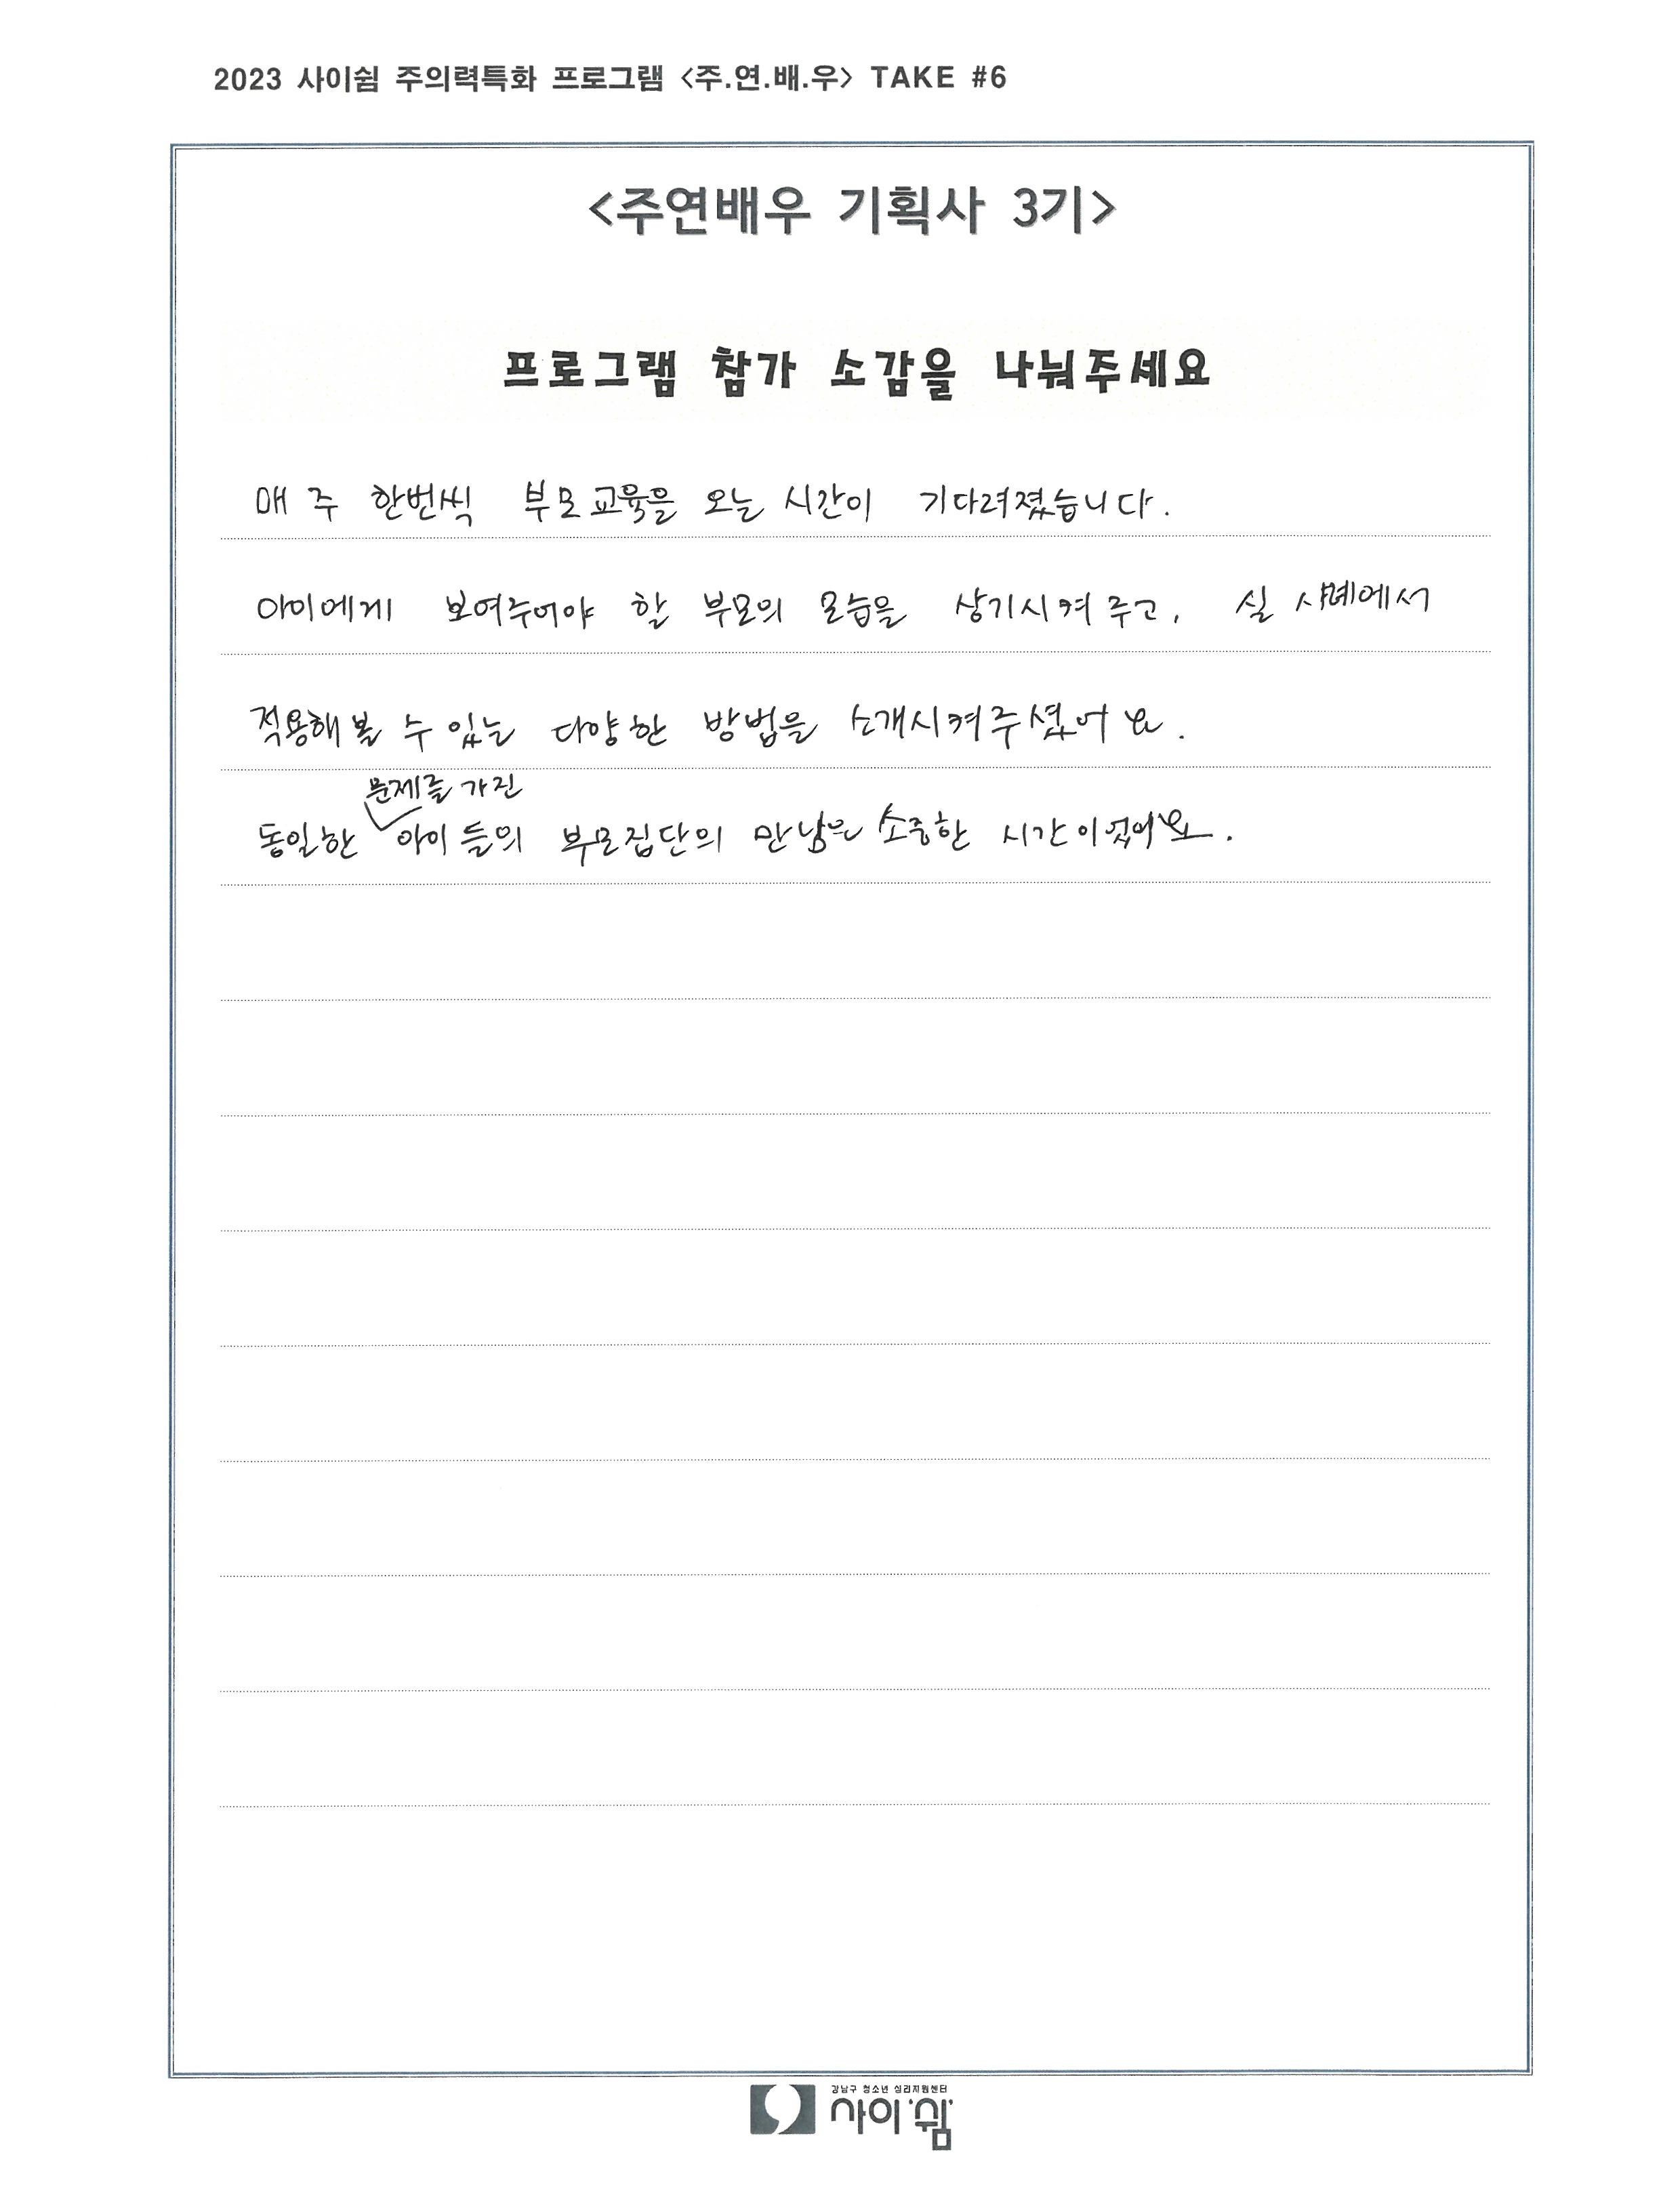 2023 사이쉼 주의력특화 프로그램 <주.연.배.우> TAKE #6
<주연배우 기획사 3기>
프로그램 참가 소감을 나눠주세요
매 주 한번씩 부모교육을 오는 시간이 기다려졌습니다.
아이에게 보여주어야 할 부모의 모습을 상기시켜 주고, 실 사례에서
적용해 볼 수 있는 다양한 방법을 소개시켜주셨어요.
문제를 가진
동일한 아이들의 부모집단의 만남은 소중한 시간이었어요.
강남구 청소년 심리지원센터
사이쉼